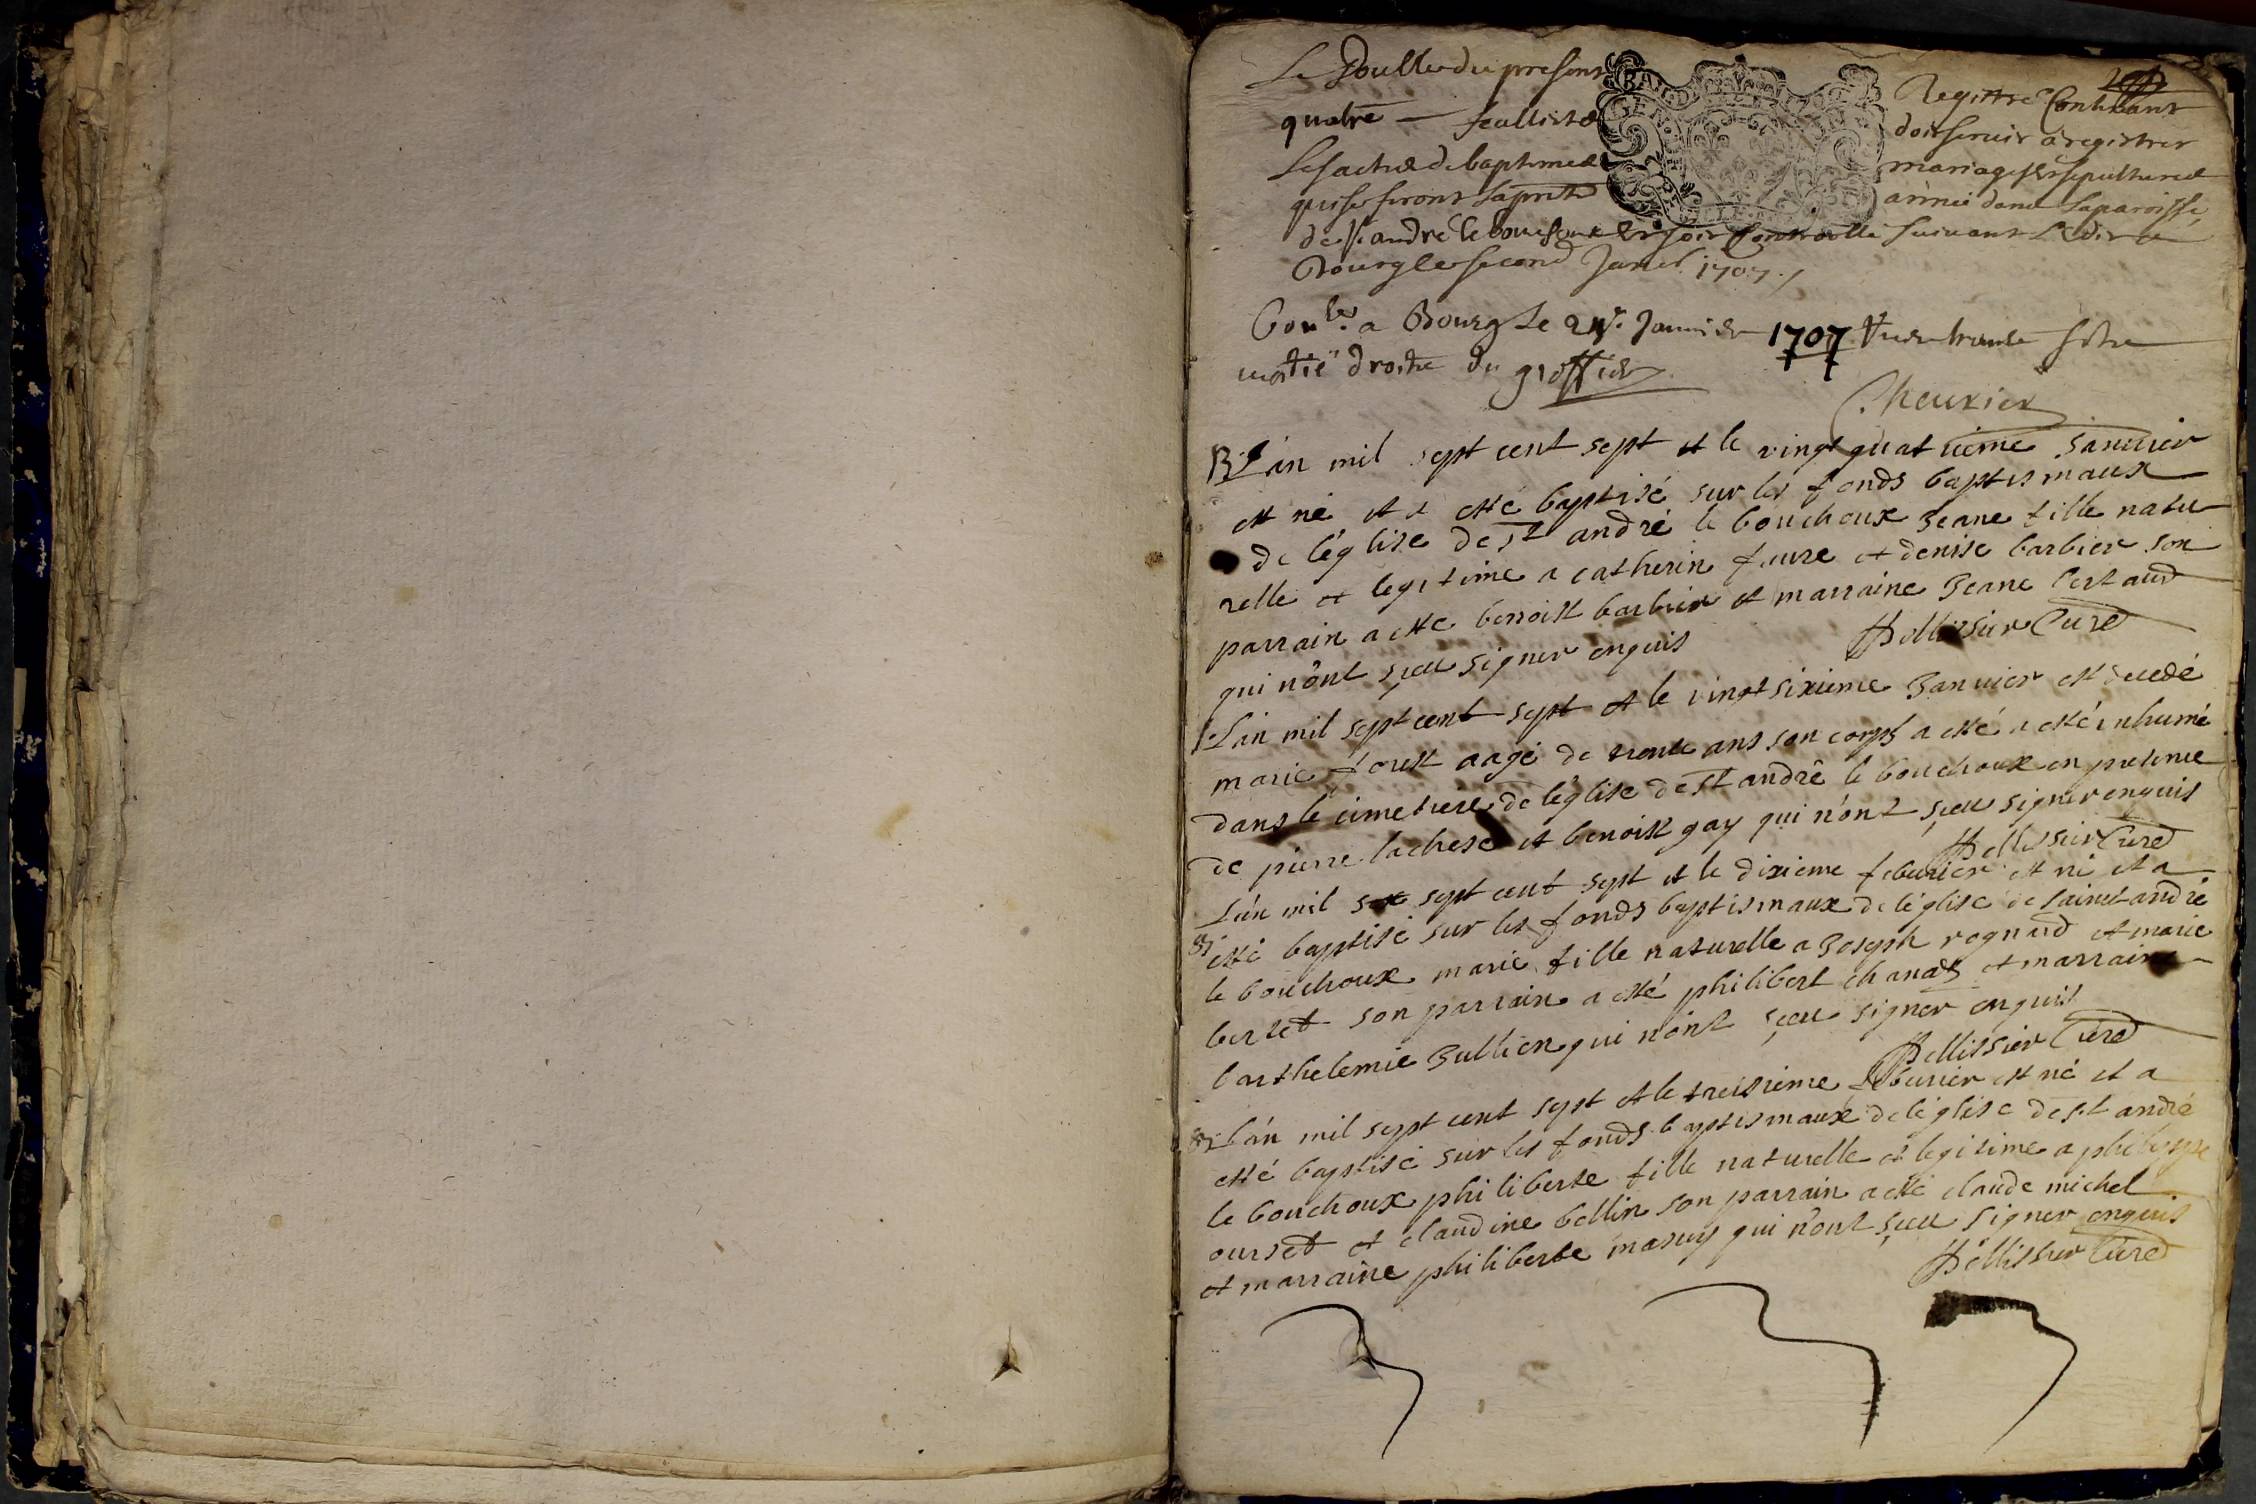 Le Double du present Registre Contenant
quatre feullists doit servir a registrer
Les actes de baptemes mariages et sepultures
qui se feront la pnte année dans la paroisse
de st andré le bouchoux Et soit Controollé suivant L'Edit a
Bourg le second Janvier 1707
Conlé a Bourg Le Janvier 1707
moitié droits du greffier
Cheurier
B L'an mil sept cent sept et le vingt quatrieme Januier
est né et a esté baptisé sur les fonds baptismaux
de léglise de st andré le bouchoux Jeane fille natu
relle et legitime a catherin feure et denise barbier son
parrain a esté benoist barbier et marraine Jeane bertaud
qui n'ont sçeu signer enquis
Pellissier Curé
L'an mil sept cent sept et le vingt sixieme Januier est decedé
marie forest aagé de trente ans son corps a esté a esté inhumé
dans le cimetiere de léglise de st andré le bouchoux en presence
de pierre lachese et benoist gay qui n'ont sçeu signer enquis
Pellissier Curé
L'an mil sept cent sept et le dixieme feburier est né et a
B esté baptisé sur les fonds baptismaux de léglise de sainct andré
le bouchoux marie fille naturelle a Joseph rognard et marie
bertet son parrain a esté philibert chanas et marraine
barthelemie Jullien qui n'ont sçeu signer enquis
Pellissier Curé
B L'an mil sept cent sept et le treisieme feburier est né et a
esté baptisé sur les fonds baptismaux de léglise de st andré
le bouchoux philiberte fille naturelle et legitime a philippe
ourset et claudine bellin son parrain a esté claude michel
et marraine philiberte masuy qui n'ont sçeu signer enquis
Pellissier Curé